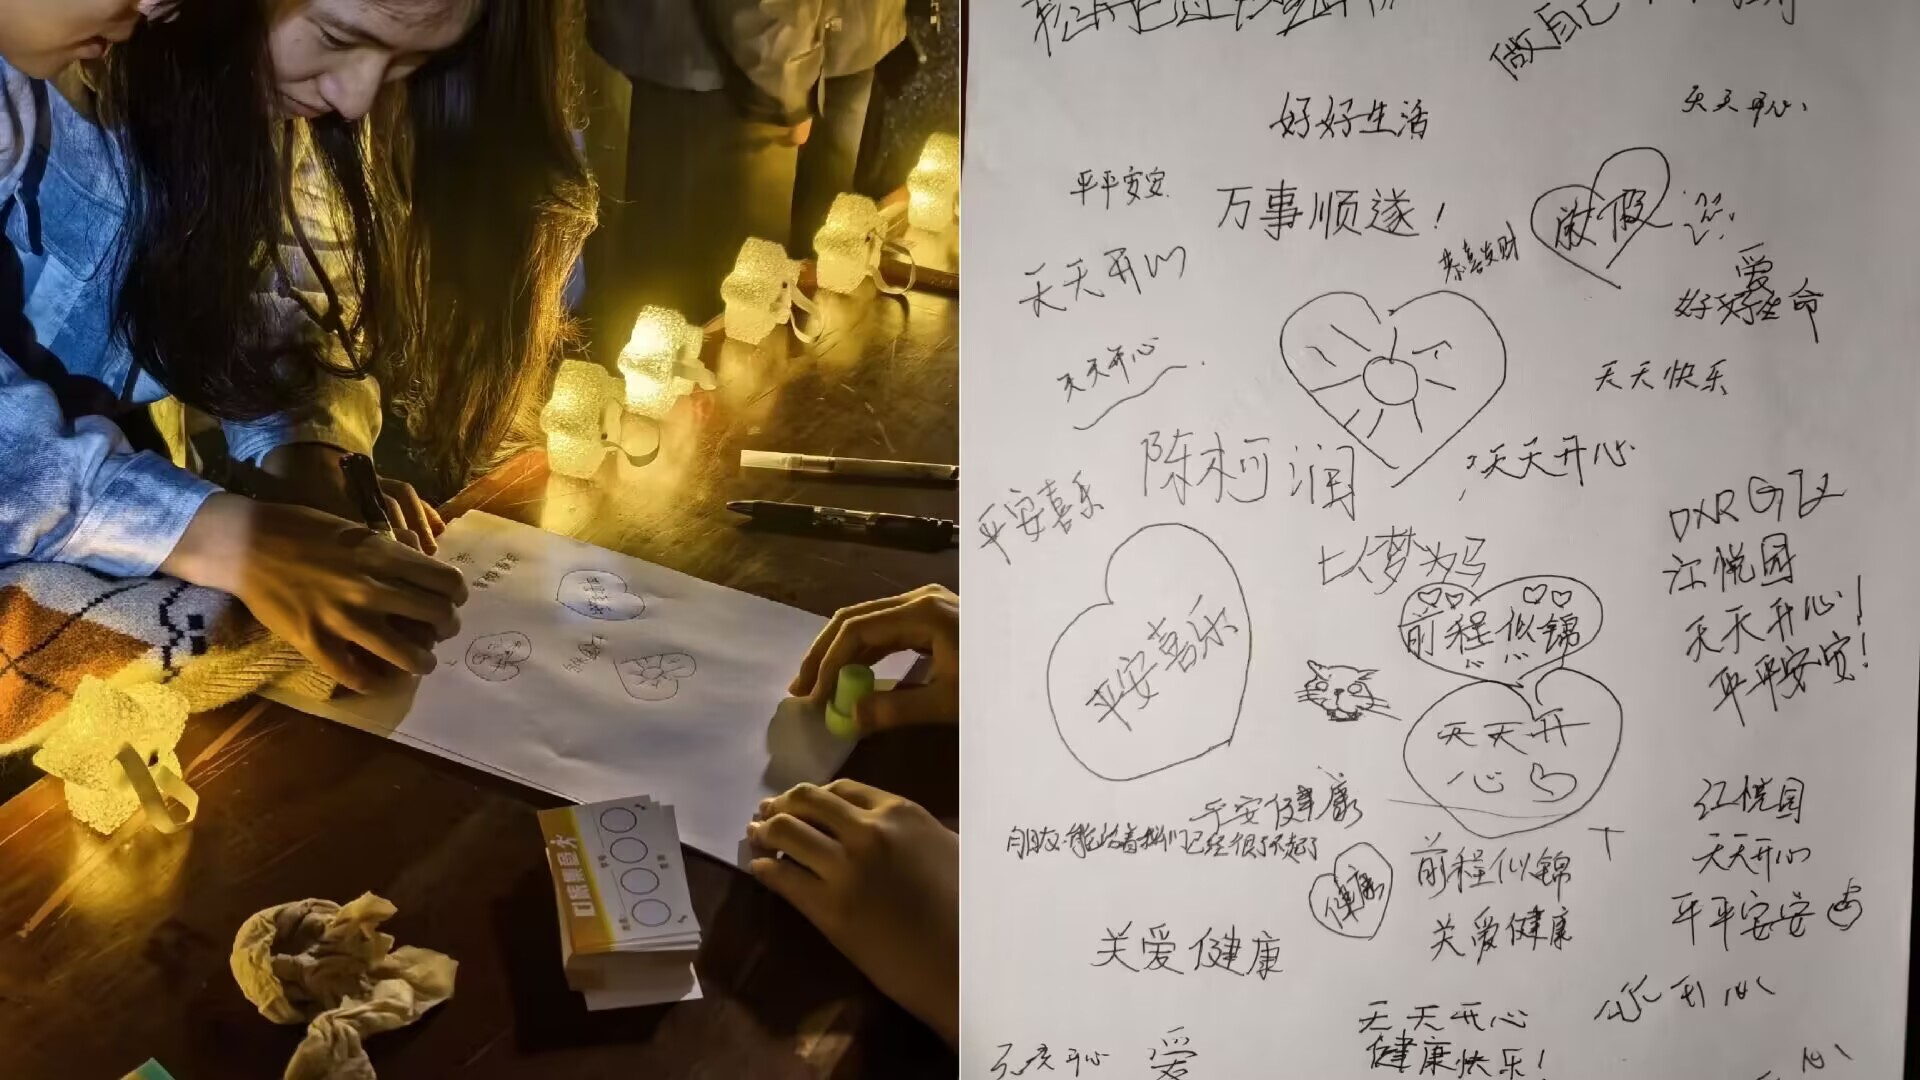 做自己
好好生活
天天开心
平平安安
万事顺遂！
放假
恭喜发财
天天开心
爱
好好生命
天天开心
天天快乐
陈柯润
天天开心
平安喜乐
DXR
江悦园
天天开心！
平平安安！
以梦为马
前程似锦
平安喜乐
天天开
心
江悦园
天天开心
平平安安
平安健康
朋友，能活着我们已经很了不起了
健康
前程似锦
关爱健康
关爱健康
天天开心
健康快乐！
爱
开心